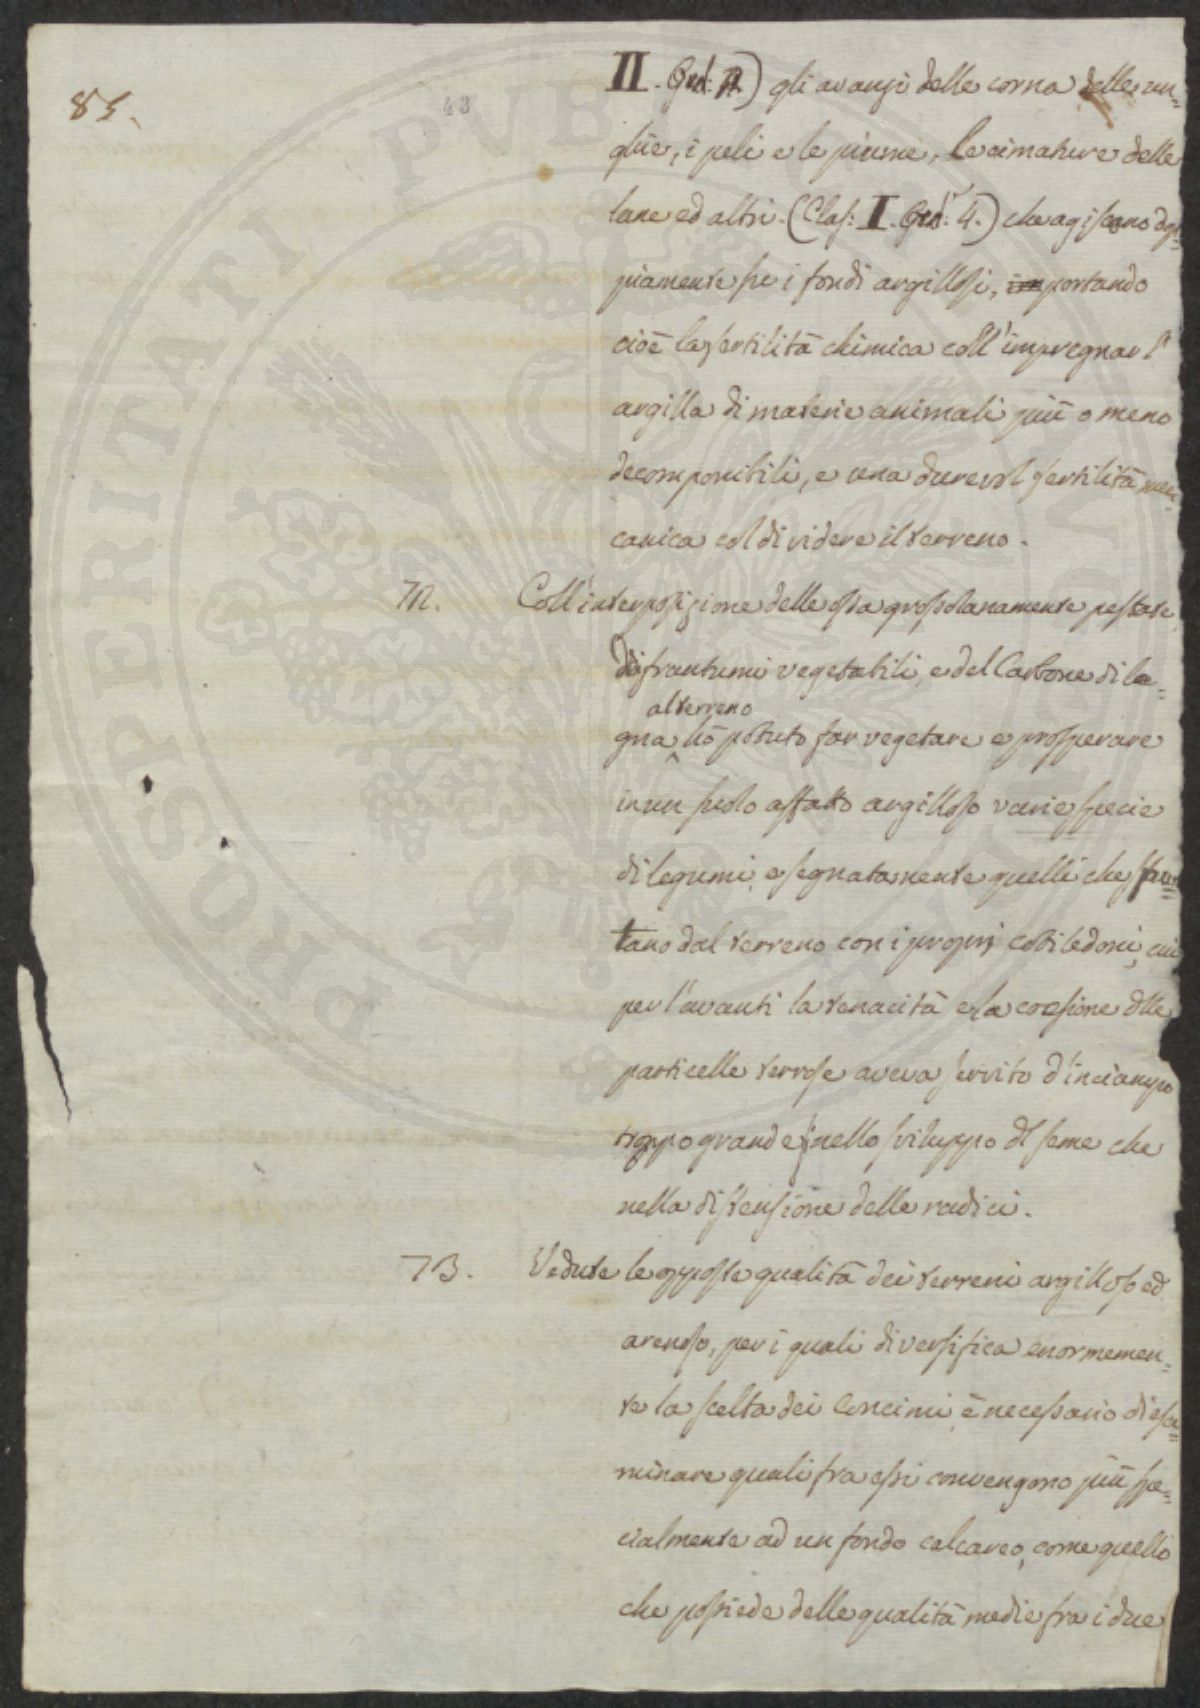 85.
43
II. Ord: A.) gli avanzi delle corna delle un=
ghie, i peli e le piume, le cimature delle
lane ed altri. (Clas: I. Ord: 4.) che agiscono dop=
piamente su i fondi argillosi, portando
cioè la fertilità chimica coll'impregnar l'
argilla di materie animali più o meno
decomponibili, e una durevol fertilità mec=
canica col dividere il terreno.
72. Coll'interposizione delle ossa grossolanamente pestate,
di frantumi vegetabili, e del Carbone di le=
al terreno
gna ^ hò potuto far vegetare e prosperare
in un suolo affatto argilloso varie specie
di legumi, e segnatamente quelli che spun=
tano dal terreno con i proprj cotiledoni, cui
per l'avanti la tenacità e la coesione dlle
particelle terrose aveva servito d'inciampo
troppo grande nello sviluppo dl seme che
nella distensione delle radici.
73. Vedute le opposte qualità dei terreni argilloso ed
arenoso, per i quali diversifica enormemen=
te la scelta dei Concimi, è necessario di esa=
minare quali fra essi convengono più spe=
cialmente ad un fondo calcareo, come quello
che possiede delle qualità medie fra i due
PROSPERITATI PVBLICAE